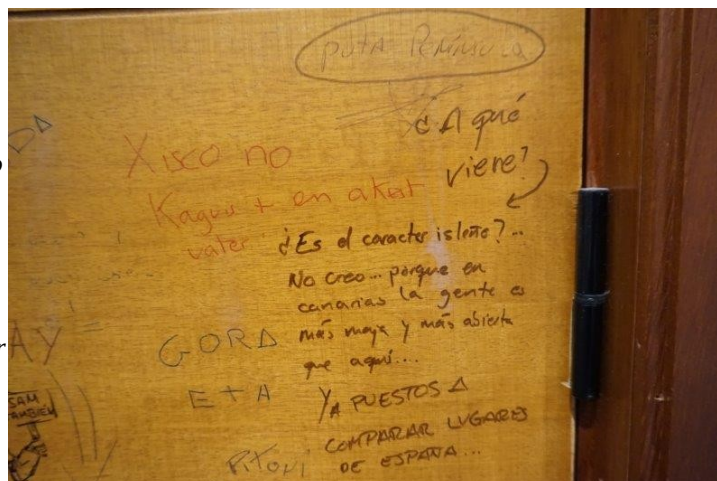 PUTA PENÍNSULA
¿A qué
viene?
Xisco no
Kagues + en akest
vater
¿Es el caracter isleño?...
No creo... porque en
canarias la gente es
más maja y más abierta
que aquí....
GORA
ETA
YA PUESTOS A
COMPARAR LUGARES
DE ESPAÑA...
PITONI
AY
SAM
TAMBIEN